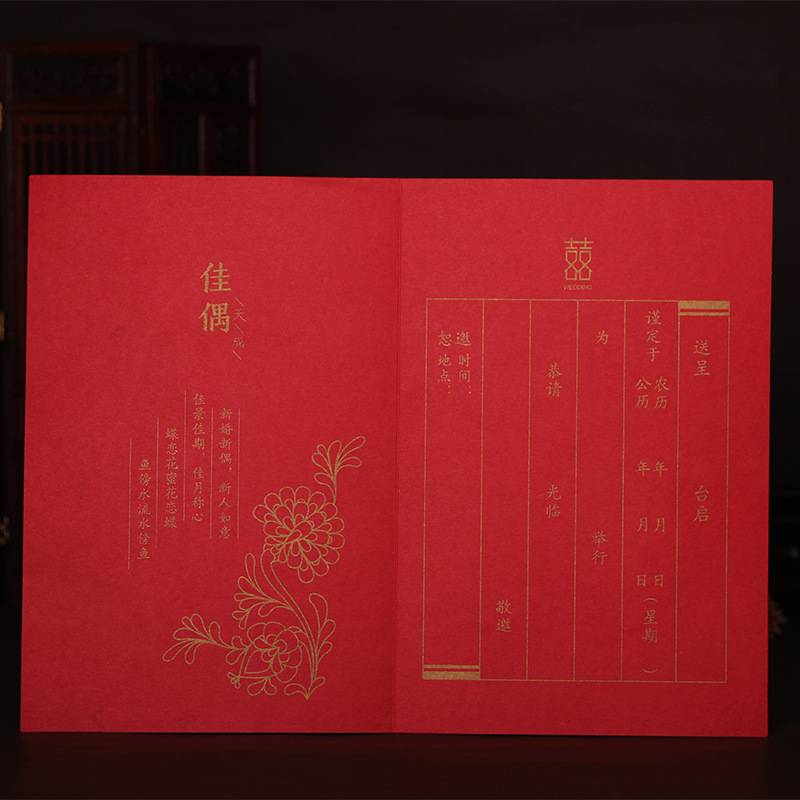 佳偶
天成
新婚新偶，新人如意
佳景佳期，佳月称心
蝶恋花蜜花恋蝶
鱼傍水流水傍鱼
囍
WEDDING
送呈 台启
谨定于 农历 年 月 日
公历 年 月 日 (星期 )
为 举行
恭请 光临
敬邀
邀 时间：
恕 地点：